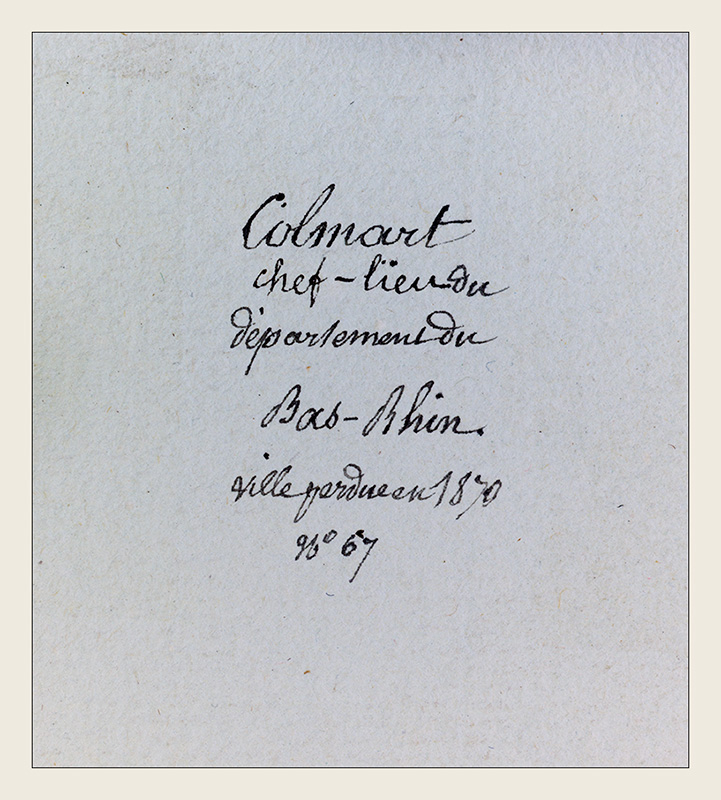 Colmart
chef-lieu du
département du
Bas-Rhin.
ville perdue en 1870
No 67